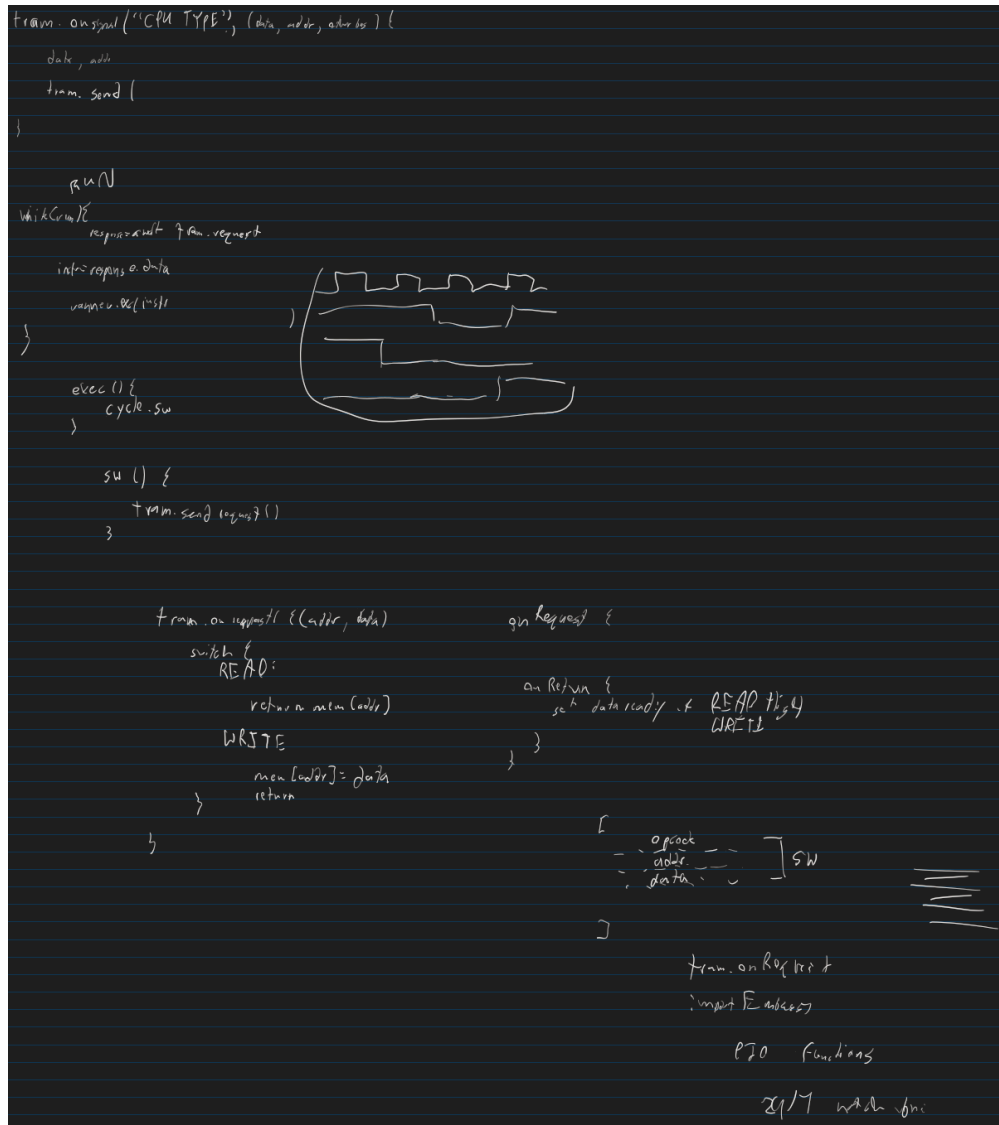 tram.onsignal("CPU TYPE"), (data, addr, other bus) {
data, addr
tram.send (
}
RUN
while(run){
response=await tram.request
instr=response.data
exec(instr
}
exec () {
cycle.sw
}
sw () {
tram.sendrequest()
}
tram.onrequest( {(addr, data)
switch {
READ:
return mem[addr]
WRITE
mem[addr]=data
return
}
}
onRequest {
onReturn {
set data ready if READ High
WRITE
}
}
[
opcode
addr
data
] SW
]
tram.onRequest
import Embassy
PIO Functions